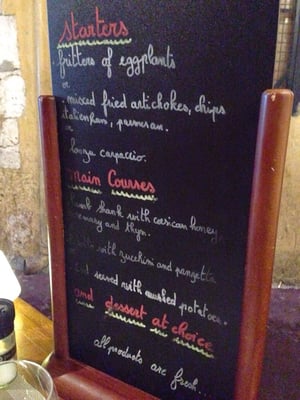 starters
fritters of eggplants
or
mixed fried artichokes, chips
italienham, parmesan.
or
lonzu carpaccio.
Main Courses
lamb shank with corsican honey
rosemary and thym.
with zucchini and pangetta
served with mushed potatoes.
and dessert at choice
All products are fresh...